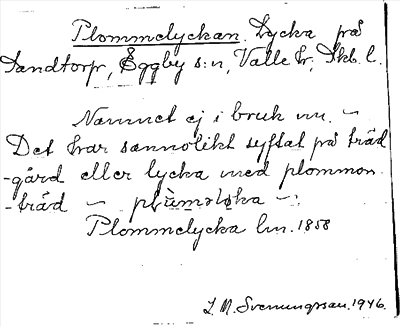 Plommelyckan. Lycka på
Sandtorp, Eggby s:n, Valle hr, Skb. l.
Namnet ej i bruk nu. –
Det har sannolikt syftat på träd
-gård eller lycka med plommon
-träd – plùməløka –
Plommelycka lm. 1858
L. M. Svenungsson. 1946.